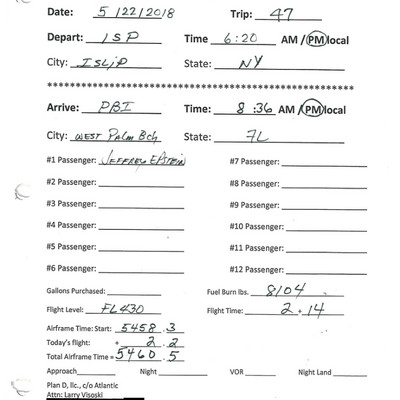 Date: 5/22/2018 Trip: 47
Depart: ISP Time 6:20 AM / PM local
City: ISLIP State: NY
****************************************************
Arrive: PBI Time: 8:36 AM / PM local
City: WEST Palm Bch State: FL
#1 Passenger: JEFFREY EPSTEIN #7 Passenger:
#2 Passenger: #8 Passenger:
#3 Passenger: #9 Passenger:
#4 Passenger: #10 Passenger:
#5 Passenger: #11 Passenger:
#6 Passenger: #12 Passenger:
Gallons Purchased: Fuel Burn lbs. 8104
Flight Level: FL430 Flight Time: 2.14
Airframe Time: Start: 5458.3
Today's flight: + 2.2
Total Airframe Time = 5460.5
Approach Night VOR Night Land
Plan D, llc., c/o Atlantic
Attn: Larry Visoski